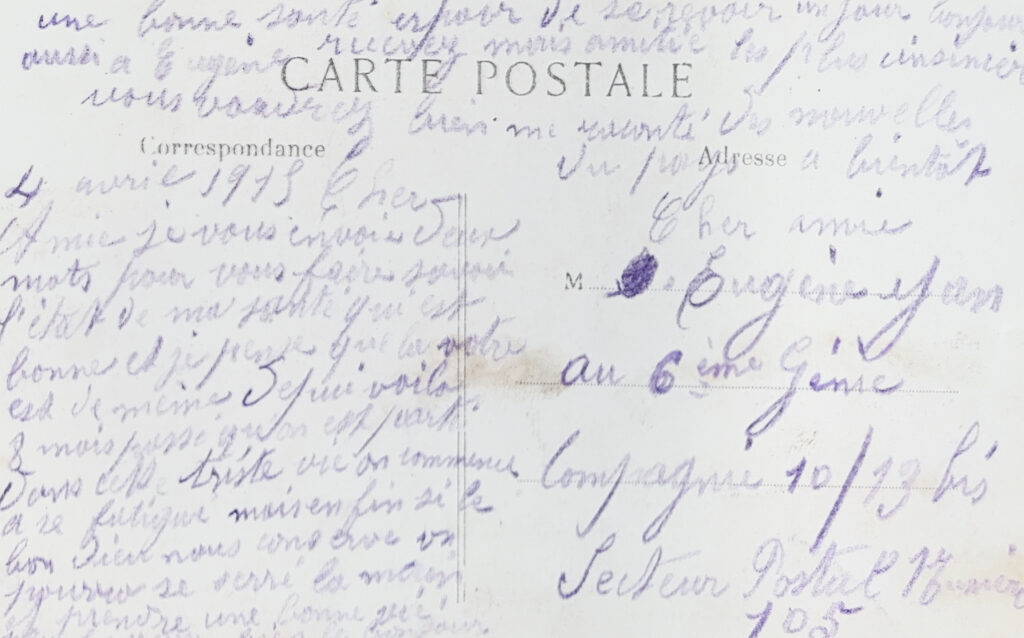 une bonne santé espoir de se revoir un jour bonjour
aussi a Eugène recevez mais amitié les plus
CARTE POSTALE
vous voudrez bien me raconté des nouvelles
Correspondance
du pays a bientôt
Adresse
4 avril 1915 Cher
Amie je vous envoie deux
mots pour vous faire savoir
l'état de ma santé qui est
bonne et je pense que la votre
est de meme Depui voila
8 mois passe qu'on est parti
Dans cette triste vie on commence
a se fatigue mais enfin si le
bon Dieu nous conserve on
pourra se serré la main
et prendre une bonne
Cher amie
M Eugène Yan
au 6 ème Génie
Compagnie 10/13 bis
Secteur Postal
105